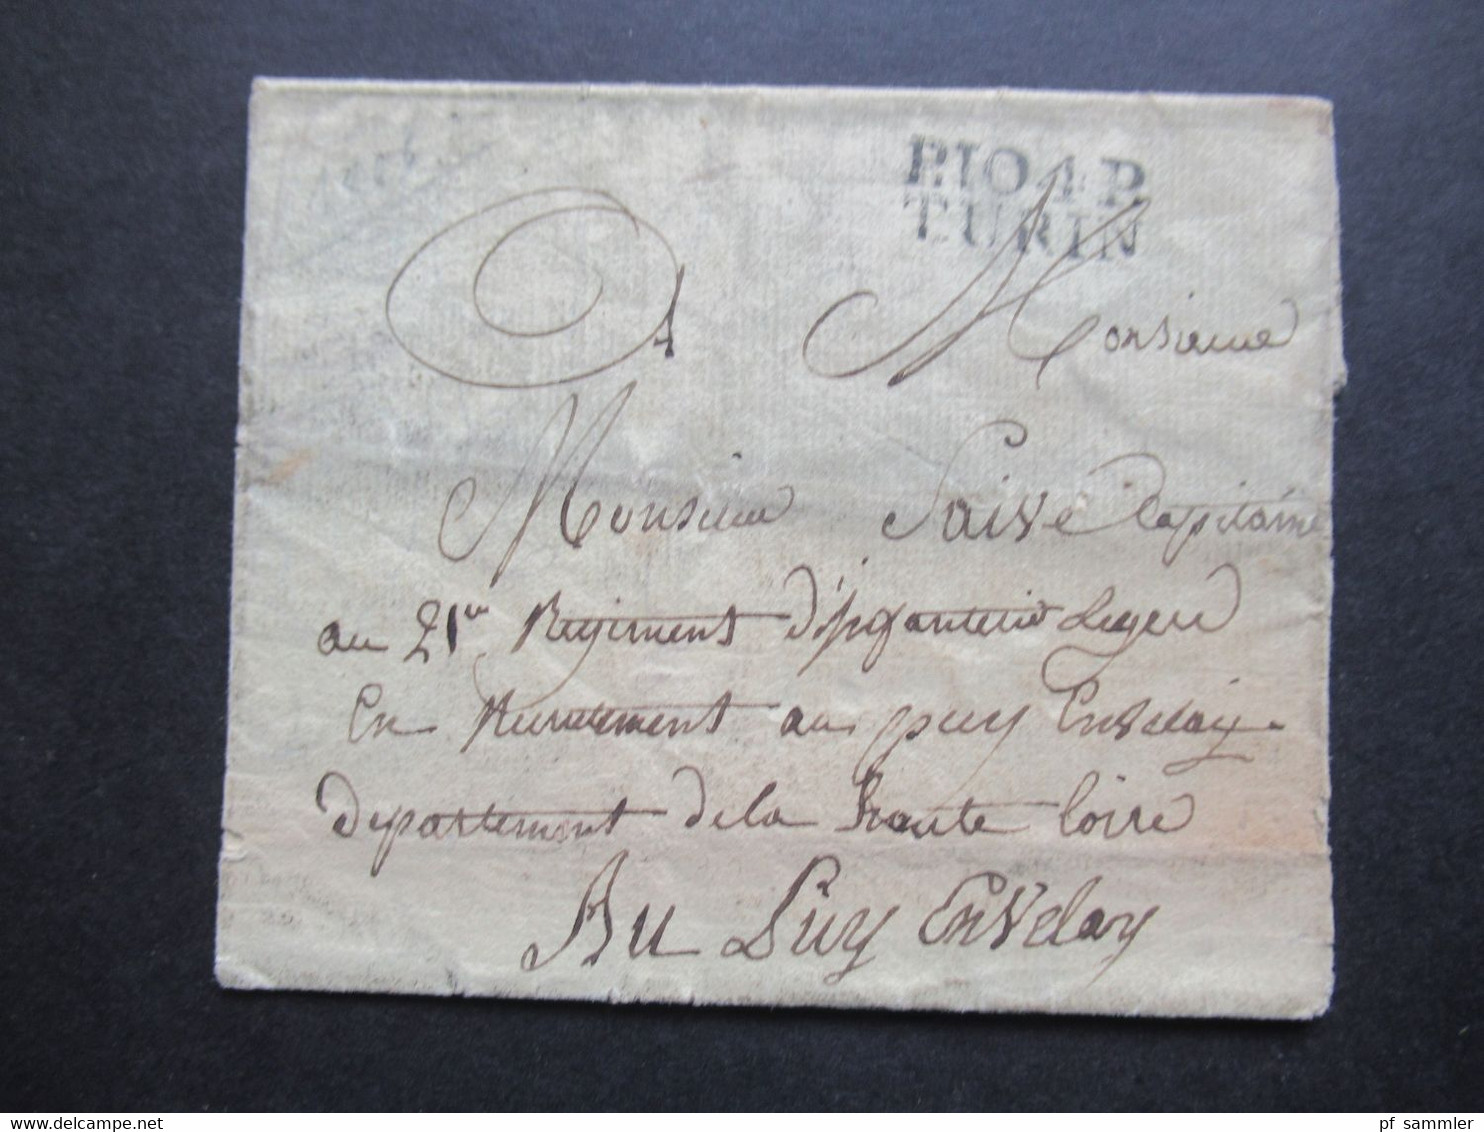 P.104.P.
TURIN
A Monsieur
Monsieur Saive Capitaine
au 21me Regiment d'infanterie Legere
En Recrutement au puy Envelay
Departement de la haute Loire
Au Puy Envelay
pf sammler
delcampe.net